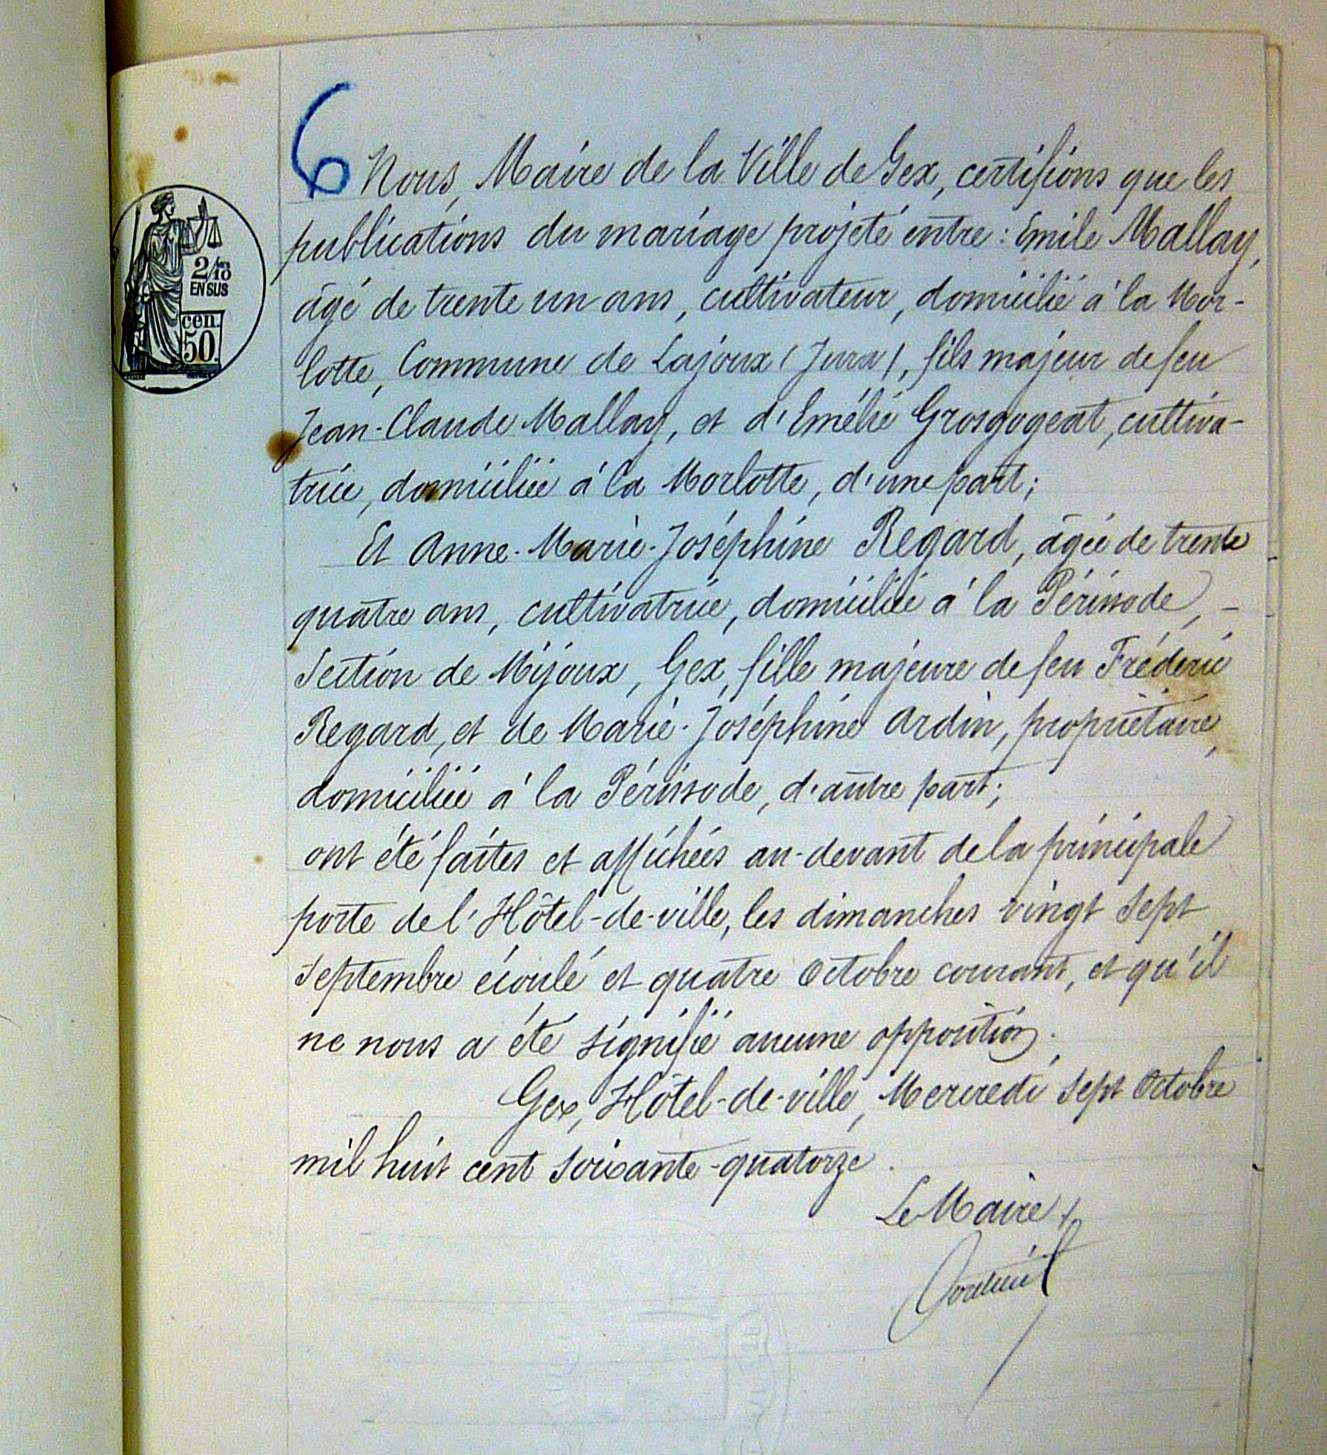 6
Nous, Maire de la Ville de Gex, certifions que les
publications du mariage projeté entre : Emile Mallay,
âgé de trente un ans, cultivateur, domicilié à la Mor-
lotte, Commune de Lajoux (Jura), fils majeur de feu
Jean-Claude Mallay, et d'Emélie Grosgogeat, cultiva-
trice, domiciliée à la Morlotte, d'une part;
Et Anne-Marie-Joséphine Regard, âgée de trente
quatre ans, cultivatrice, domiciliée à la Périssode, -
Section de Mijoux, Gex, fille majeure de feu Fréderic
Regard, et de Marie-Joséphine Ardin, propriétaire,
domiciliée à la Périssode, d'autre part;
ont été faites et affichées au-devant de la principale
porte de l'Hôtel-de-ville, les dimanches vingt Sept
Septembre écoulé et quatre Octobre courant, et qu'il
ne nous a été signifié aucune opposition.
Gex, Hôtel-de-ville, Mercredi Sept Octobre
mil huit cent soixante-quatorze.
Le Maire
2/10
EN SUS
cen.
50